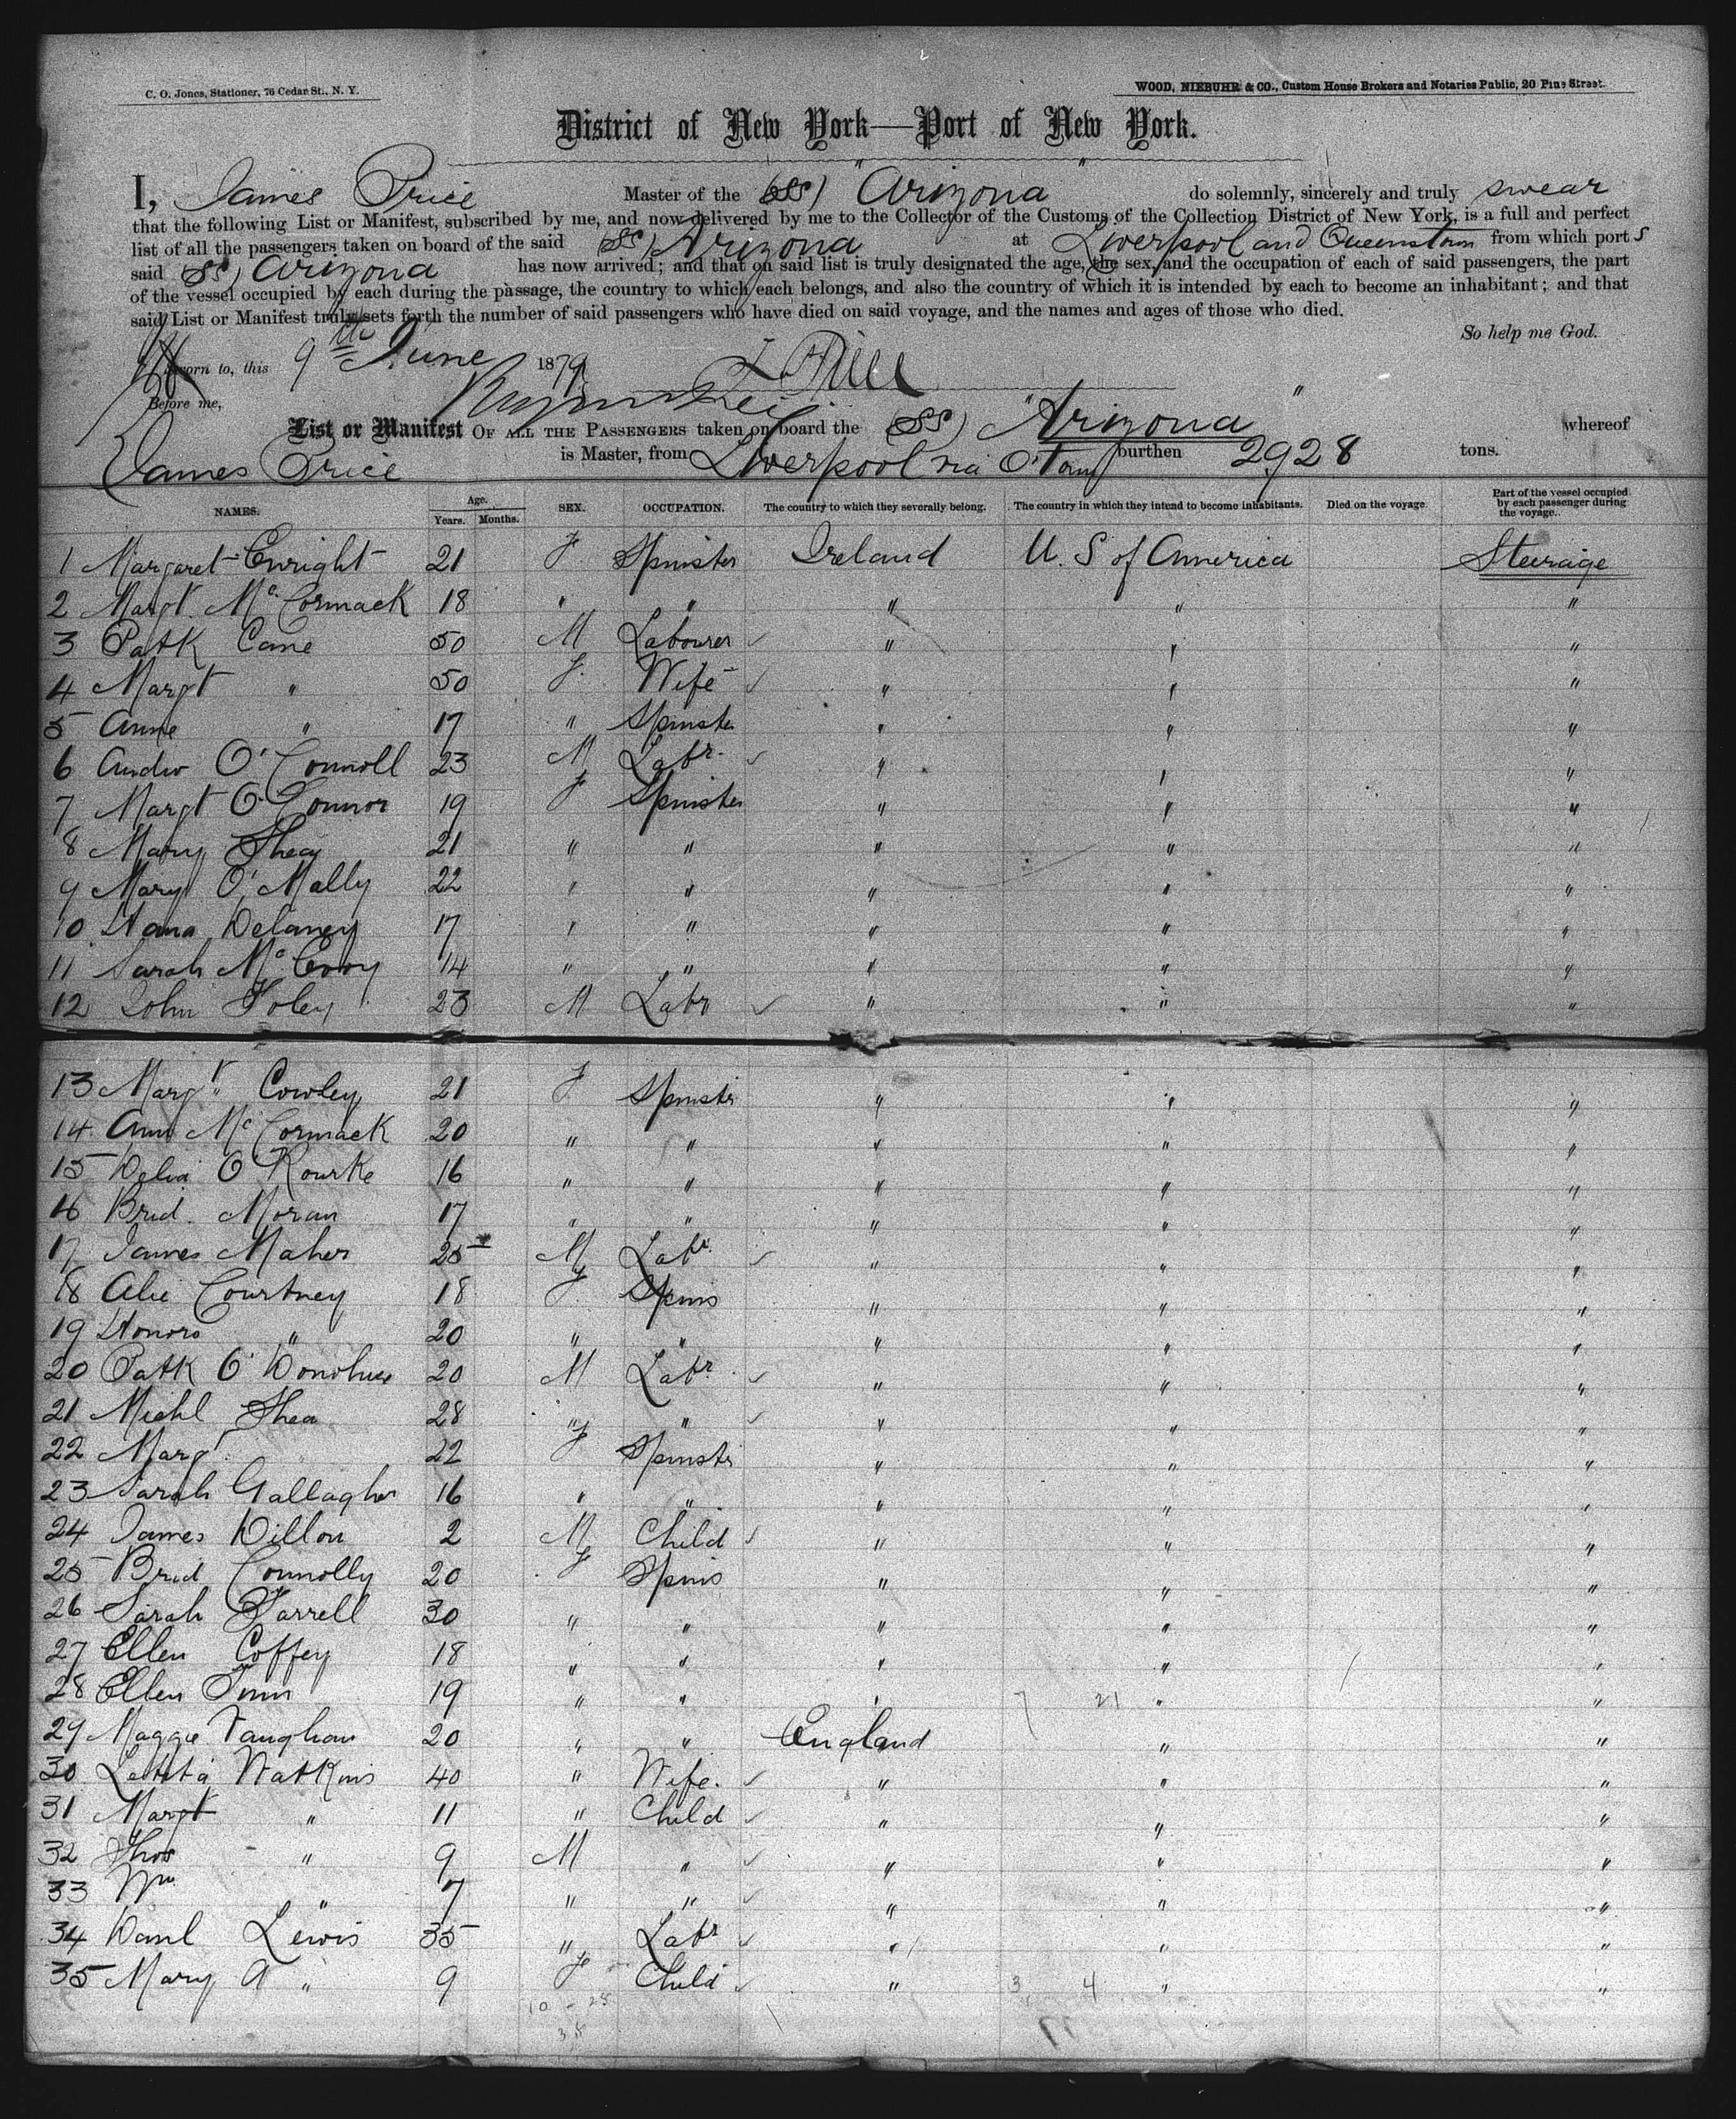 C. O. Jones, Stationer, 76 Cedar St., N. Y.
WOOD, NIEBUHR & CO., Custom House Brokers and Notaries Public, 20 Pine Street.
District of New York—Port of New York.
I, James Price Master of the (SS) "Arizona" do solemnly, sincerely and truly swear
that the following List or Manifest, subscribed by me, and now delivered by me to the Collector of the Customs of the Collection District of New York, is a full and perfect
list of all the passengers taken on board of the said (SS) Arizona at Liverpool and Queenstown from which port s
said (SS) Arizona has now arrived; and that on said list is truly designated the age, the sex, and the occupation of each of said passengers, the part
of the vessel occupied by each during the passage, the country to which each belongs, and also the country of which it is intended by each to become an inhabitant; and that
said List or Manifest truly sets forth the number of said passengers who have died on said voyage, and the names and ages of those who died.
So help me God.
Sworn to, this 9th June 1879 J Price
Before me,
List or Manifest OF ALL THE PASSENGERS taken on board the (SS) "Arizona" whereof
James Price is Master, from Liverpool via Q'Town burthen 2928 tons.
NAMES. Age. Years. Months. SEX. OCCUPATION. The country to which they severally belong. The country in which they intend to become inhabitants. Died on the voyage. Part of the vessel occupied by each passenger during the voyage.
1 Margaret Enright 21 F Spinster Ireland U. S of America Steerage
2 Margt. McCormack 18 " " " " "
3 Patk Cane 50 M Labourer " " "
4 Margt " 50 F. Wife " " "
5 Anne " 17 " Spinster " " "
6 Andw O'Connoll 23 M Labr. " " "
7 Margt O'Connor 19 F Spinster " " "
8 Mary Shea 21 " " " " "
9 Margt O'Mally 22 " " " " "
10 Hana Delaney 17 " " " " "
11 Sarah McEvoy 14 " " " " "
12 John Foley 23 M Labr " " "
13 Margt Cowley 21 F Spinstr " " "
14 Ann McCormack 20 " " " " "
15 Delia O'Rourke 16 " " " " "
16 Brid. Moran 17 " " " " "
17 James Maher 25 M Labr. " " "
18 Alie Courtney 18 F Spins " " "
19 Honora " 20 " " " " "
20 Patk O'Donohue 20 M Labr " " "
21 Michl Shea 28 " " " " "
22 Margt " 22 F Spinstr " " "
23 Sarah Gallagher 16 " " " " "
24 James Dillon 2 M Child " " "
25 Brid Connolly 20 F Spins " " "
26 Sarah Farrell 30 " " " " "
27 Ellen Coffey 18 " " " " "
28 Ellen 19 " " " 21 " "
29 Maggie Vaughan 20 " " England " "
30 Letitia Watkins 40 " Wife. " " "
31 Margt " 11 " Child " " "
32 Thos " 9 M " " " "
33 Wm " 7 " " " " "
34 Danl Lewis 35 " Labr " " "
35 Mary A " 9 F Child " 3 4 " "
10 - 25
35